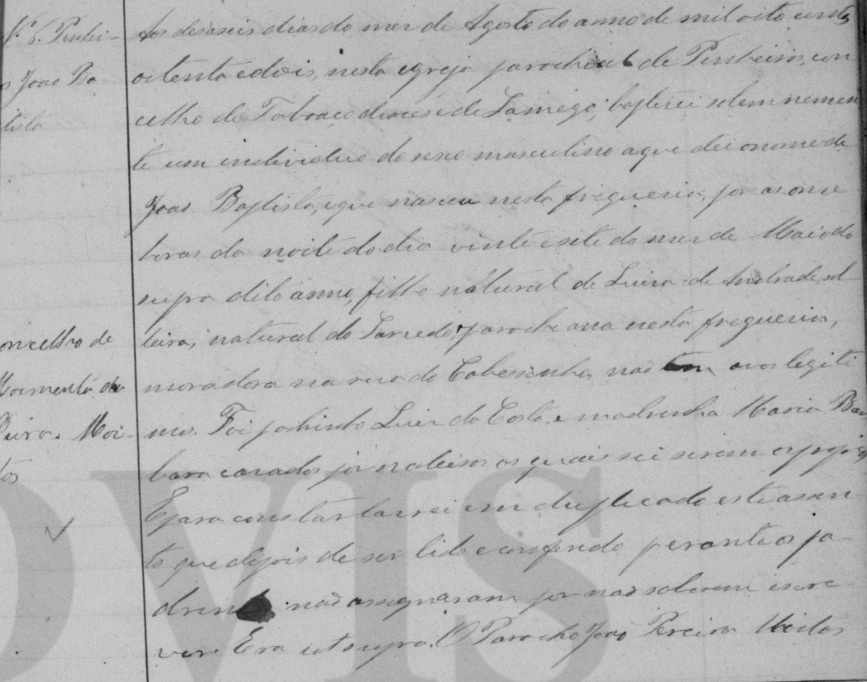 Nº 6. Pinhei-
o João Ba
tista
Aos desaseis dias do mez de Agosto do anno de mil oito centos
oitenta e dois, nesta egreja parochial de Pinheiro, con
celho de Taboaço diocese de Lamego, baptizei solemnemen
te um individuo do sexo masculino a que dei o nome de
João Baptista, e que nasceu nesta freguezia, por as onze
horas da noite do dia vinte e sete do mez de Maio do
supra dito anno, filho natural de Luiza de Andrade, sol
teira, natural do parochiana nesta freguezia,
moradora na rua do não tem avos legiti
mos. Foi padrinho Luiz da Costa, e madrinha Maria Bar
bara casados os quais sei serem os proprios
E para constar lavrei em duplicado este assen
to que depois de ser lido e conferido perante os pa
drinhos não assignaram por não saberem escre
ver. Era ut supra. O Parocho João Pereira
oncelho de
Moimenta da
Beira. Moi-
tos
OVIS